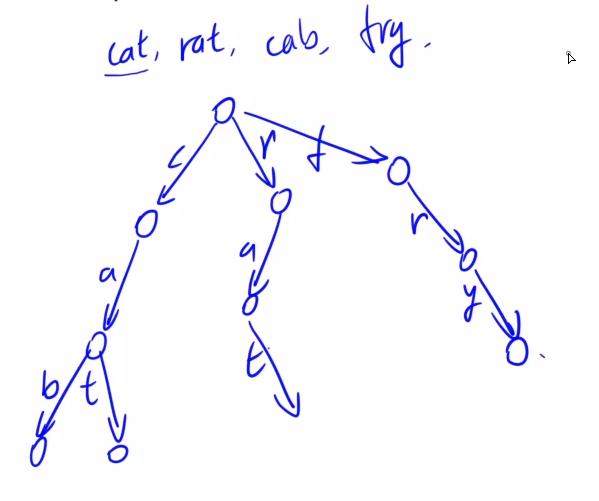 cat, rat, cab, fry.
c r f
a a r
b t t y